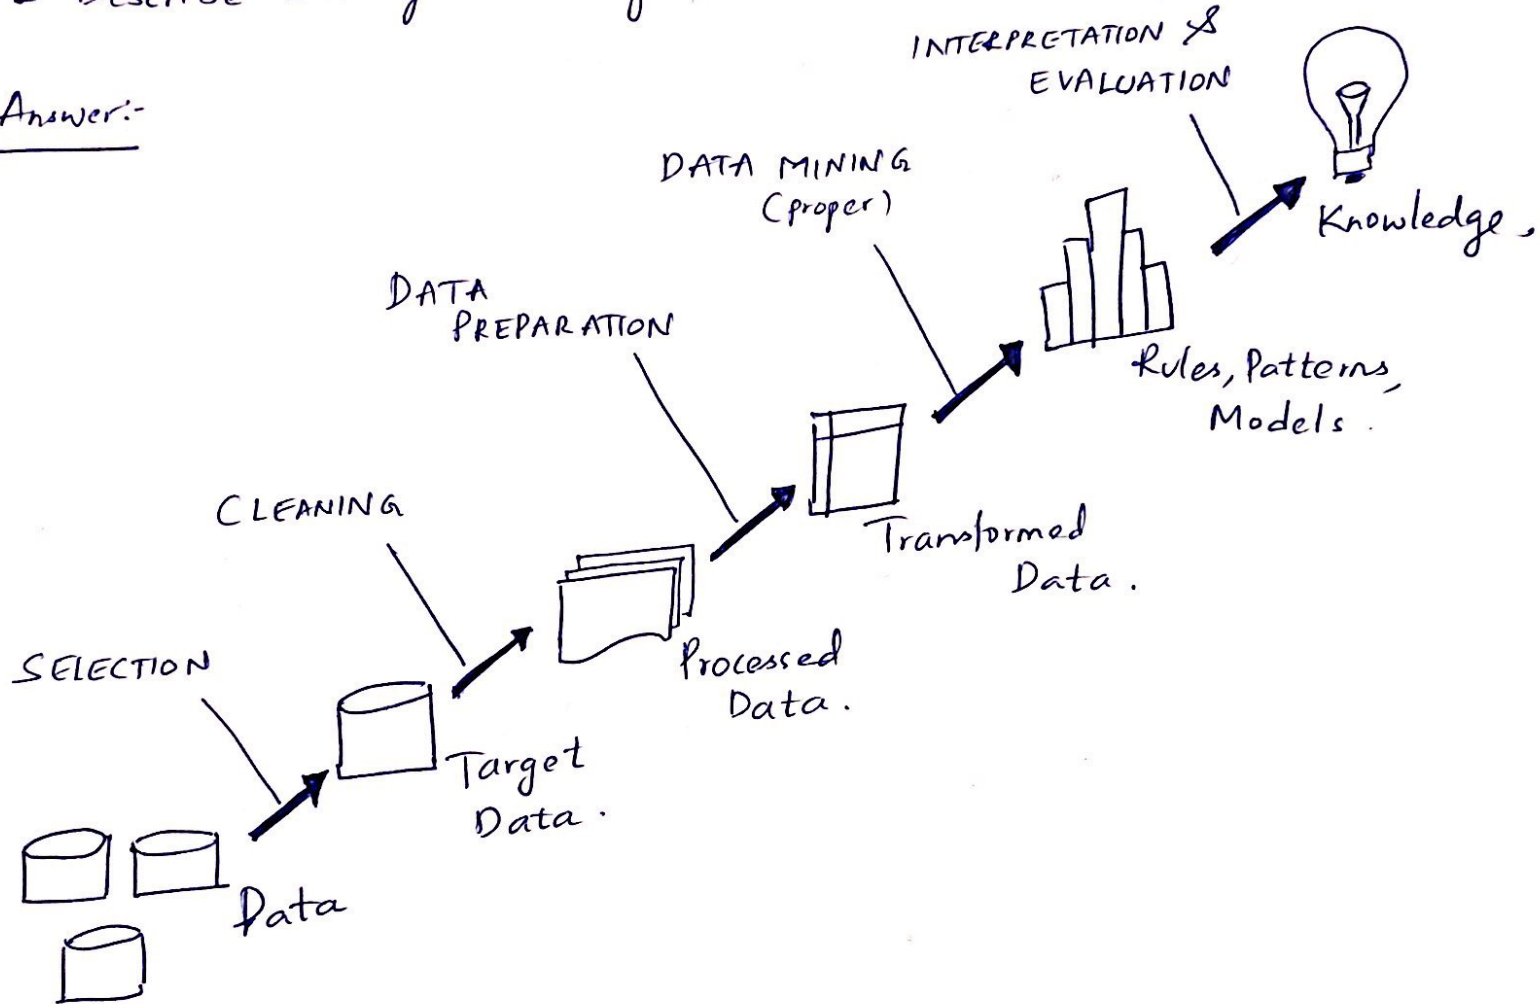 Answer:-
INTERPRETATION &
EVALUATION
Knowledge.
DATA MINING
(proper)
Rules, Patterns,
Models.
DATA
PREPARATION
Transformed
Data.
CLEANING
Processed
Data.
SELECTION
Target
Data.
Data